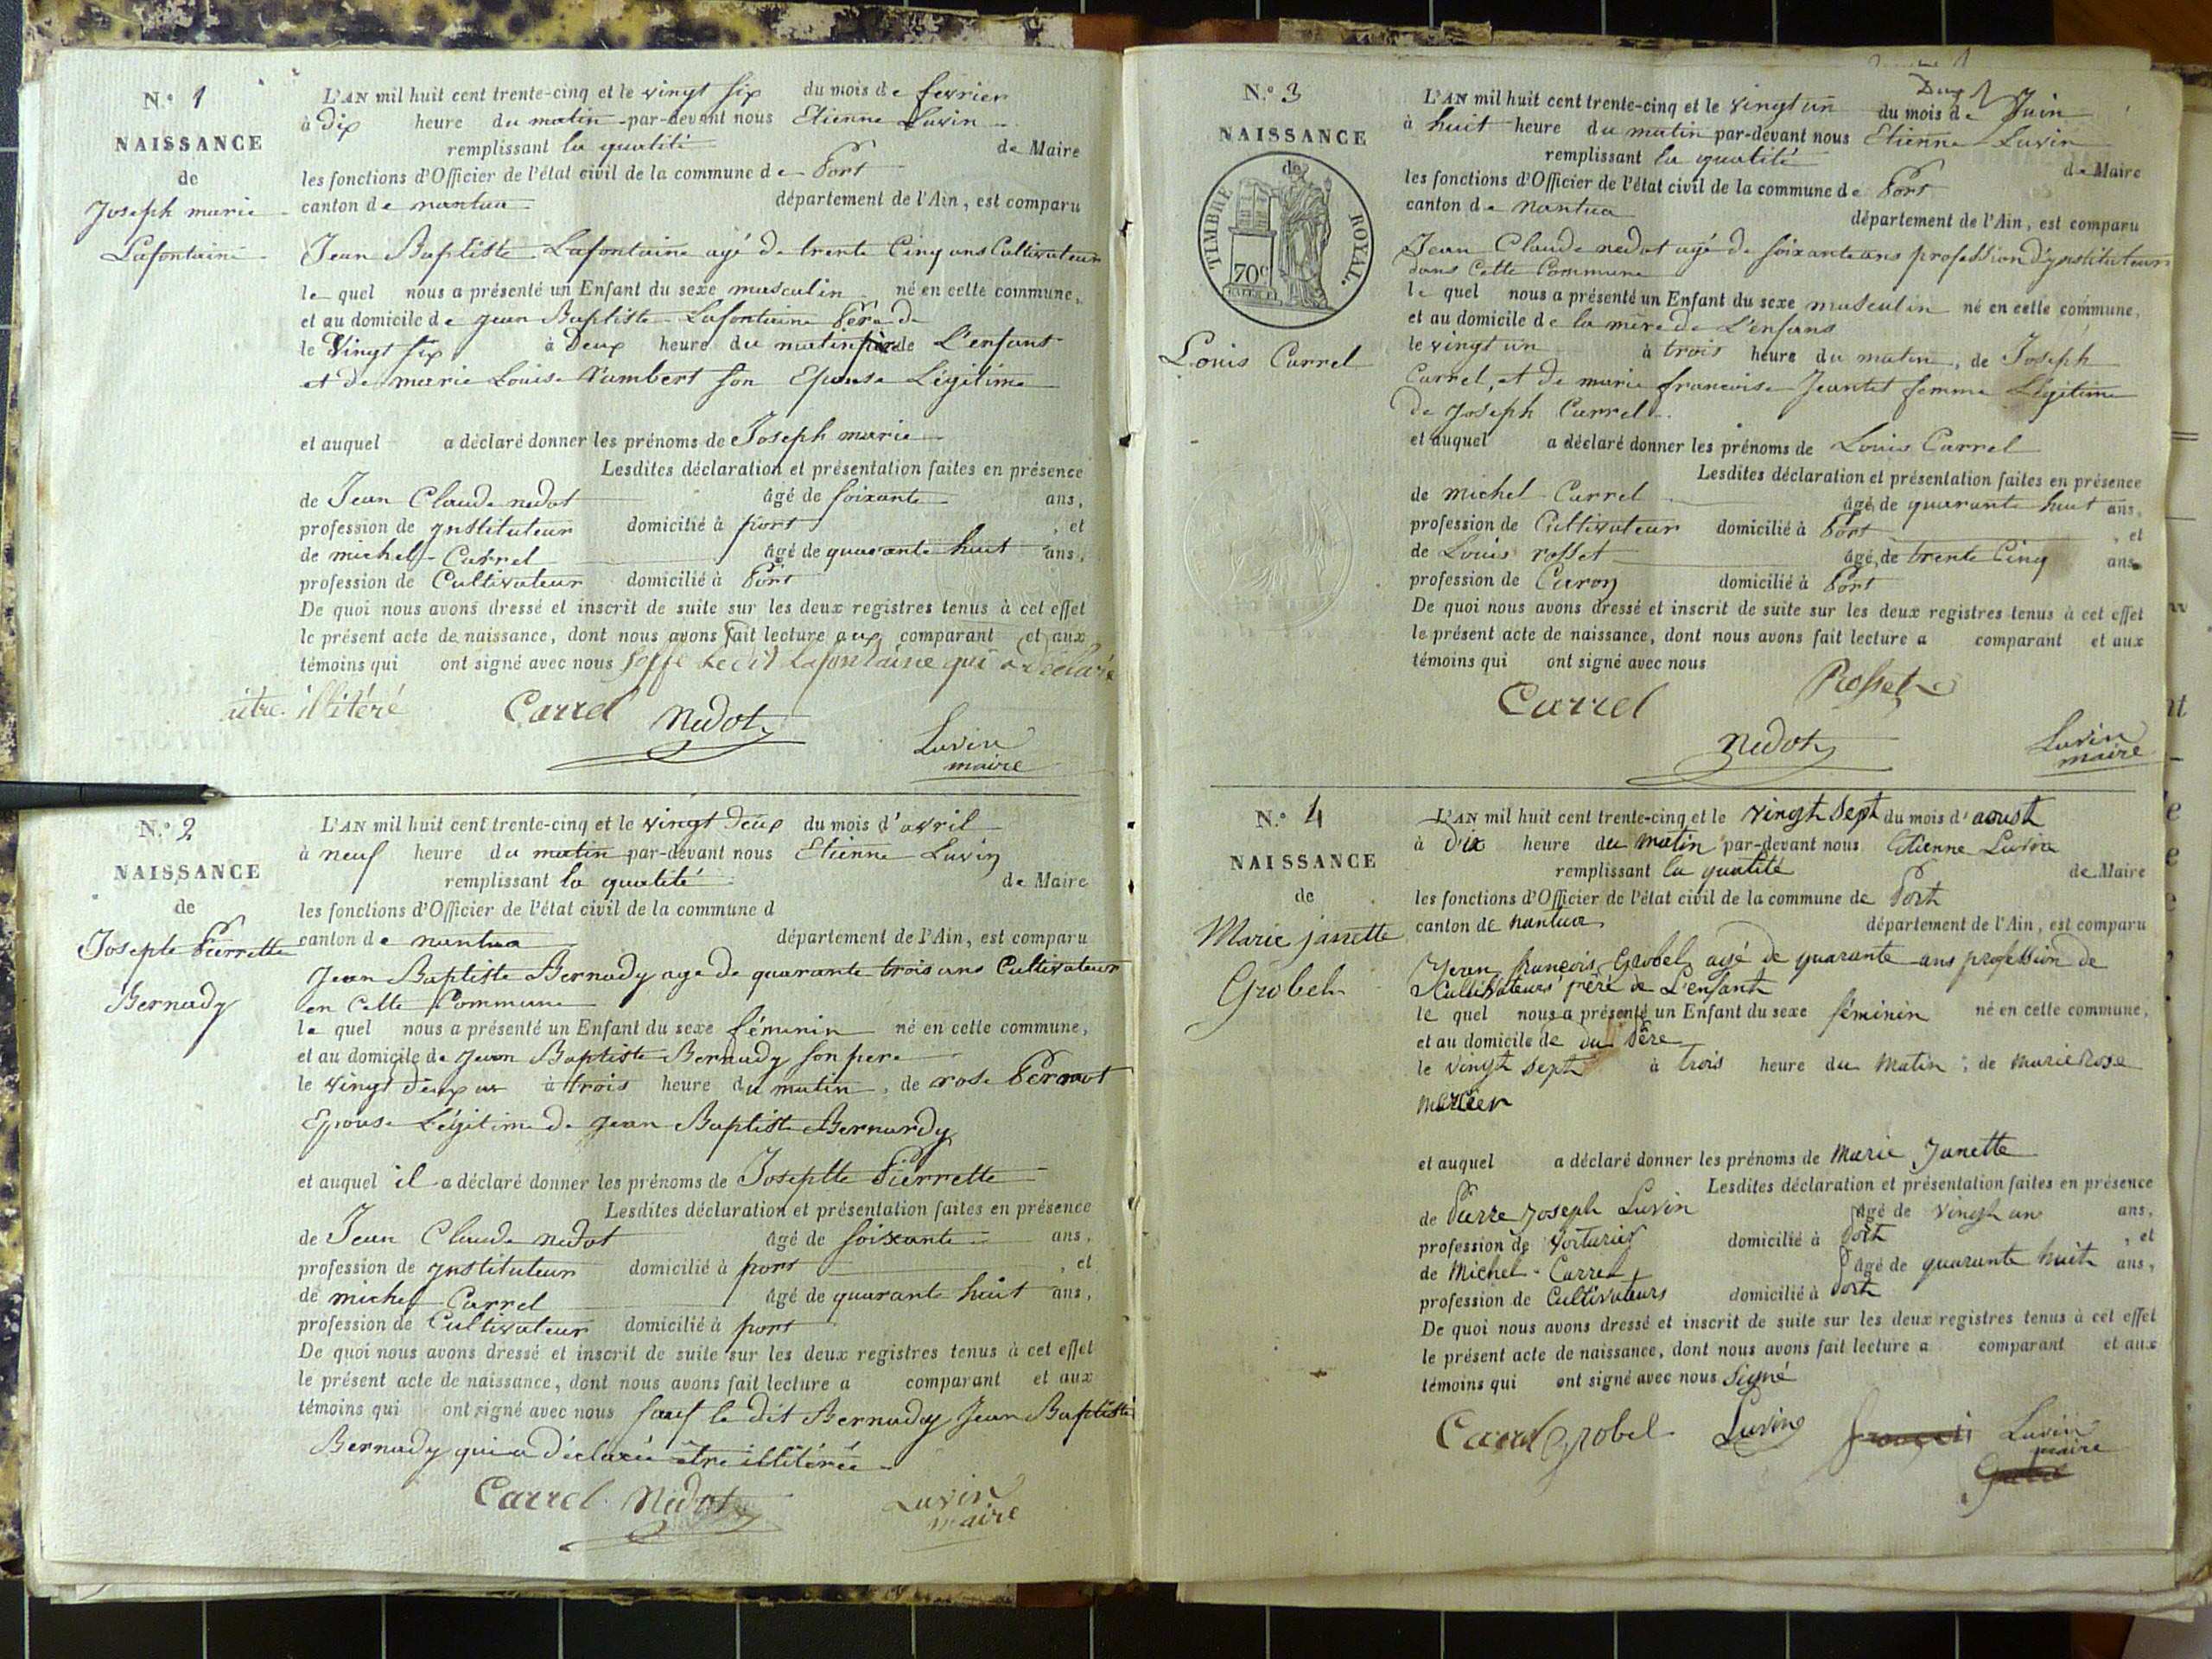 N.º 1
NAISSANCE
de
Joseph marie
Lafontaine
L'AN mil huit cent trente-cinq et le vingt six du mois de fevrier
à dix heure du matin par-devant nous Etienne Luvin
remplissant la qualité de Maire
les fonctions d'Officier de l'état civil de la commune de Port
canton de nantua département de l'Ain, est comparu
Jean Baptiste Lafontaine agé de trente Cinq ans Cultivateur
le quel nous a présenté un Enfant du sexe masculin né en cette commune,
et au domicile de jean Baptiste Lafontaine Pére de
le Vingt six à Deux heure du matin de L'enfant
et de marie Louise humbert son Epouse Légitime
et auquel a déclaré donner les prénoms de Joseph marie
Lesdites déclaration et présentation faites en présence
de Jean Claude nedot âgé de soixante ans,
profession de ynstituteur domicilié à port , et
de michel Carrel âgé de quarante huit ans,
profession de Cultivateur domicilié à Port
De quoi nous avons dressé et inscrit de suite sur les deux registres tenus à cet effet
le présent acte de naissance, dont nous avons fait lecture aux comparant et aux
témoins qui ont signé avec nous soffe ledit Lafontaine qui a déclaré
aitre illitéré Carrel Nedot
Luvin
maire
N.º 2
NAISSANCE
de
Josepte Pierrette
Bernady
L'AN mil huit cent trente-cinq et le vingt deux du mois d'avril
à neuf heure du matin par-devant nous Etienne Luvin
remplissant la qualité de Maire
les fonctions d'Officier de l'état civil de la commune d
canton de nantua département de l'Ain, est comparu
Jean Baptiste Bernady age de quarante trois ans Cultivateur
en Cette Commune
le quel nous a présenté un Enfant du sexe féminin né en cette commune,
et au domicile de jean Baptiste Bernady son pere
le vingt deux à trois heure du matin, de rose Pernot
Epouse Légitime de jean Baptiste Bernardy
et auquel il a déclaré donner les prénoms de Joseptte Pierrette
Lesdites déclaration et présentation faites en présence
de Jean Claude nedot âgé de soixante ans,
profession de ynstituteur domicilié à port , et
de michel Carrel âgé de quarante huit ans,
profession de Cultivateur domicilié à port
De quoi nous avons dressé et inscrit de suite sur les deux registres tenus à cet effet
le présent acte de naissance, dont nous avons fait lecture a comparant et aux
témoins qui ont signé avec nous sauf le dit Bernady Jean Baptiste
Bernady qui a déclaré être illitérée
Carrel Nedot Luvin
maire
N.º 3
NAISSANCE
de
TIMBRE ROYAL.
70c
Louis Carrel
L'AN mil huit cent trente-cinq et le vingt un du mois de Juin
à huit heure du matin par-devant nous Etienne Luvin
remplissant la qualité de Maire
les fonctions d'Officier de l'état civil de la commune de Port
canton de nantua département de l'Ain, est comparu
Jean Claude nedot agé de soixante ans profession d'ynstituteur
dans Cette Commune
le quel nous a présenté un Enfant du sexe masculin né en cette commune,
et au domicile de la mère de L'enfans
le vingt un à trois heure du matin, de Joseph
Carrel, et de marie francoise Jeantet femme Légitime
de joseph Carrel
et auquel a déclaré donner les prénoms de Louis Carrel
Lesdites déclaration et présentation faites en présence
de michel Carrel âgé de quarante huit ans,
profession de Cultivateur domicilié à Port , et
de Louis rosset âgé de trente Cinq ans
profession de Caron domicilié à Port
De quoi nous avons dressé et inscrit de suite sur les deux registres tenus à cet effet
le présent acte de naissance, dont nous avons fait lecture a comparant et aux
témoins qui ont signé avec nous
Carrel Rosset
Nedot Luvin
maire
N.º 4
NAISSANCE
de
Marie janette
Grobel
L'AN mil huit cent trente-cinq et le vingt sept du mois d'aoust
à dix heure du matin par-devant nous Etienne Luvin
remplissant la qualité de Maire
les fonctions d'Officier de l'état civil de la commune de Port
canton de nantua département de l'Ain, est comparu
Jean françois Grobel agé de quarante ans profession de
Cultivateurs père de L'enfant
le quel nous a présenté un Enfant du sexe féminin né en cette commune,
et au domicile de du Père
le vingt sept à trois heure du matin, de marie Rose
mercier
et auquel a déclaré donner les prénoms de Marie Janette
Lesdites déclaration et présentation faites en présence
de Pierre Joseph Luvin âgé de vingt un ans,
profession de voiturier domicilié à Port , et
de Michel Carrel âgé de quarante huit ans,
profession de Cultivateurs domicilié à Port
De quoi nous avons dressé et inscrit de suite sur les deux registres tenus à cet effet
le présent acte de naissance, dont nous avons fait lecture a comparant et aux
témoins qui ont signé avec nous Signé
Carrel Grobel Luvin françois Luvin
maire